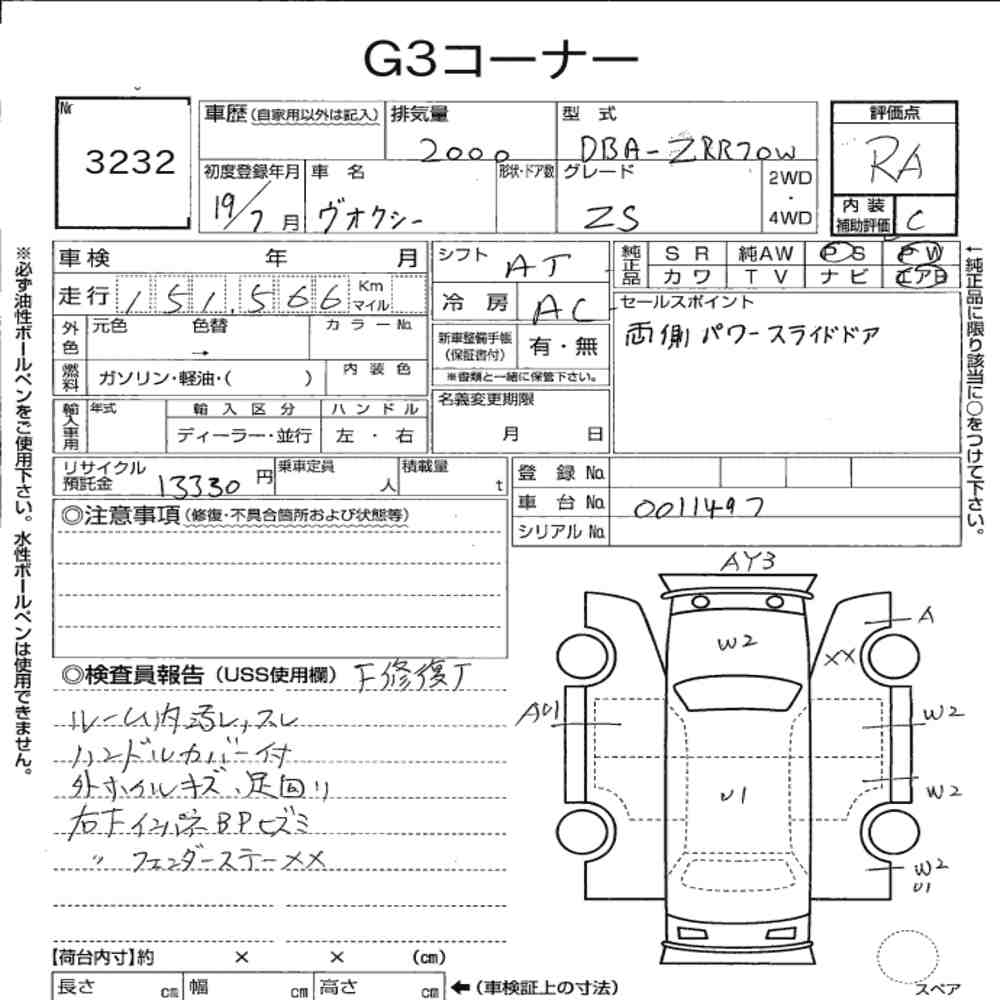 G3コーナー
Nr
3232
車歴(自家用以外は記入)
排気量
2000
型 式
DBA-ZRR70W
評価点
RA
初度登録年月
19/7月
車 名
ヴォクシー
形状・ドア数
グレード
ZS
2WD
・
4WD
内 装
補助評価
C
車検 年 月
シフト
AT
純正品
SR 純AW PS PW
カワ TV ナビ エアB
走行 151,566 Km
マイル
冷 房
AC
セールスポイント
両側パワースライドドア
外色
元色 色替 カラーNo.
→
新車整備手帳
(保証書付)
有・無
※書類と一緒に保管下さい。
燃料
ガソリン・軽油・( )
内装色
輸入車用
年式
輸入区分
ハンドル
ディーラー・並行
左・右
名義変更期限
月 日
リサイクル
預託金
13330円
乗車定員
人
積載量
t
登録 No.
車台 No.
0011497
シリアル No.
◎注意事項(修復・不具合箇所および状態等)
※必ず油性ボールペンをご使用下さい。水性ボールペンは使用できません。
←純正品に限り該当に○をつけて下さい。
◎検査員報告(USS使用欄)
ルーム内汚レ、スレ
ハンドルカバー付
外ホイルキズ、足回り
右下インパネBPヒズミ
〃 フェンダーステーXX
AY3
A
W2
XX
AU1
W2
W2
U1
W2
U1
【荷台内寸】約 × × (cm)
長さ cm 幅 cm 高さ cm
←(車検証上の寸法)
スペア